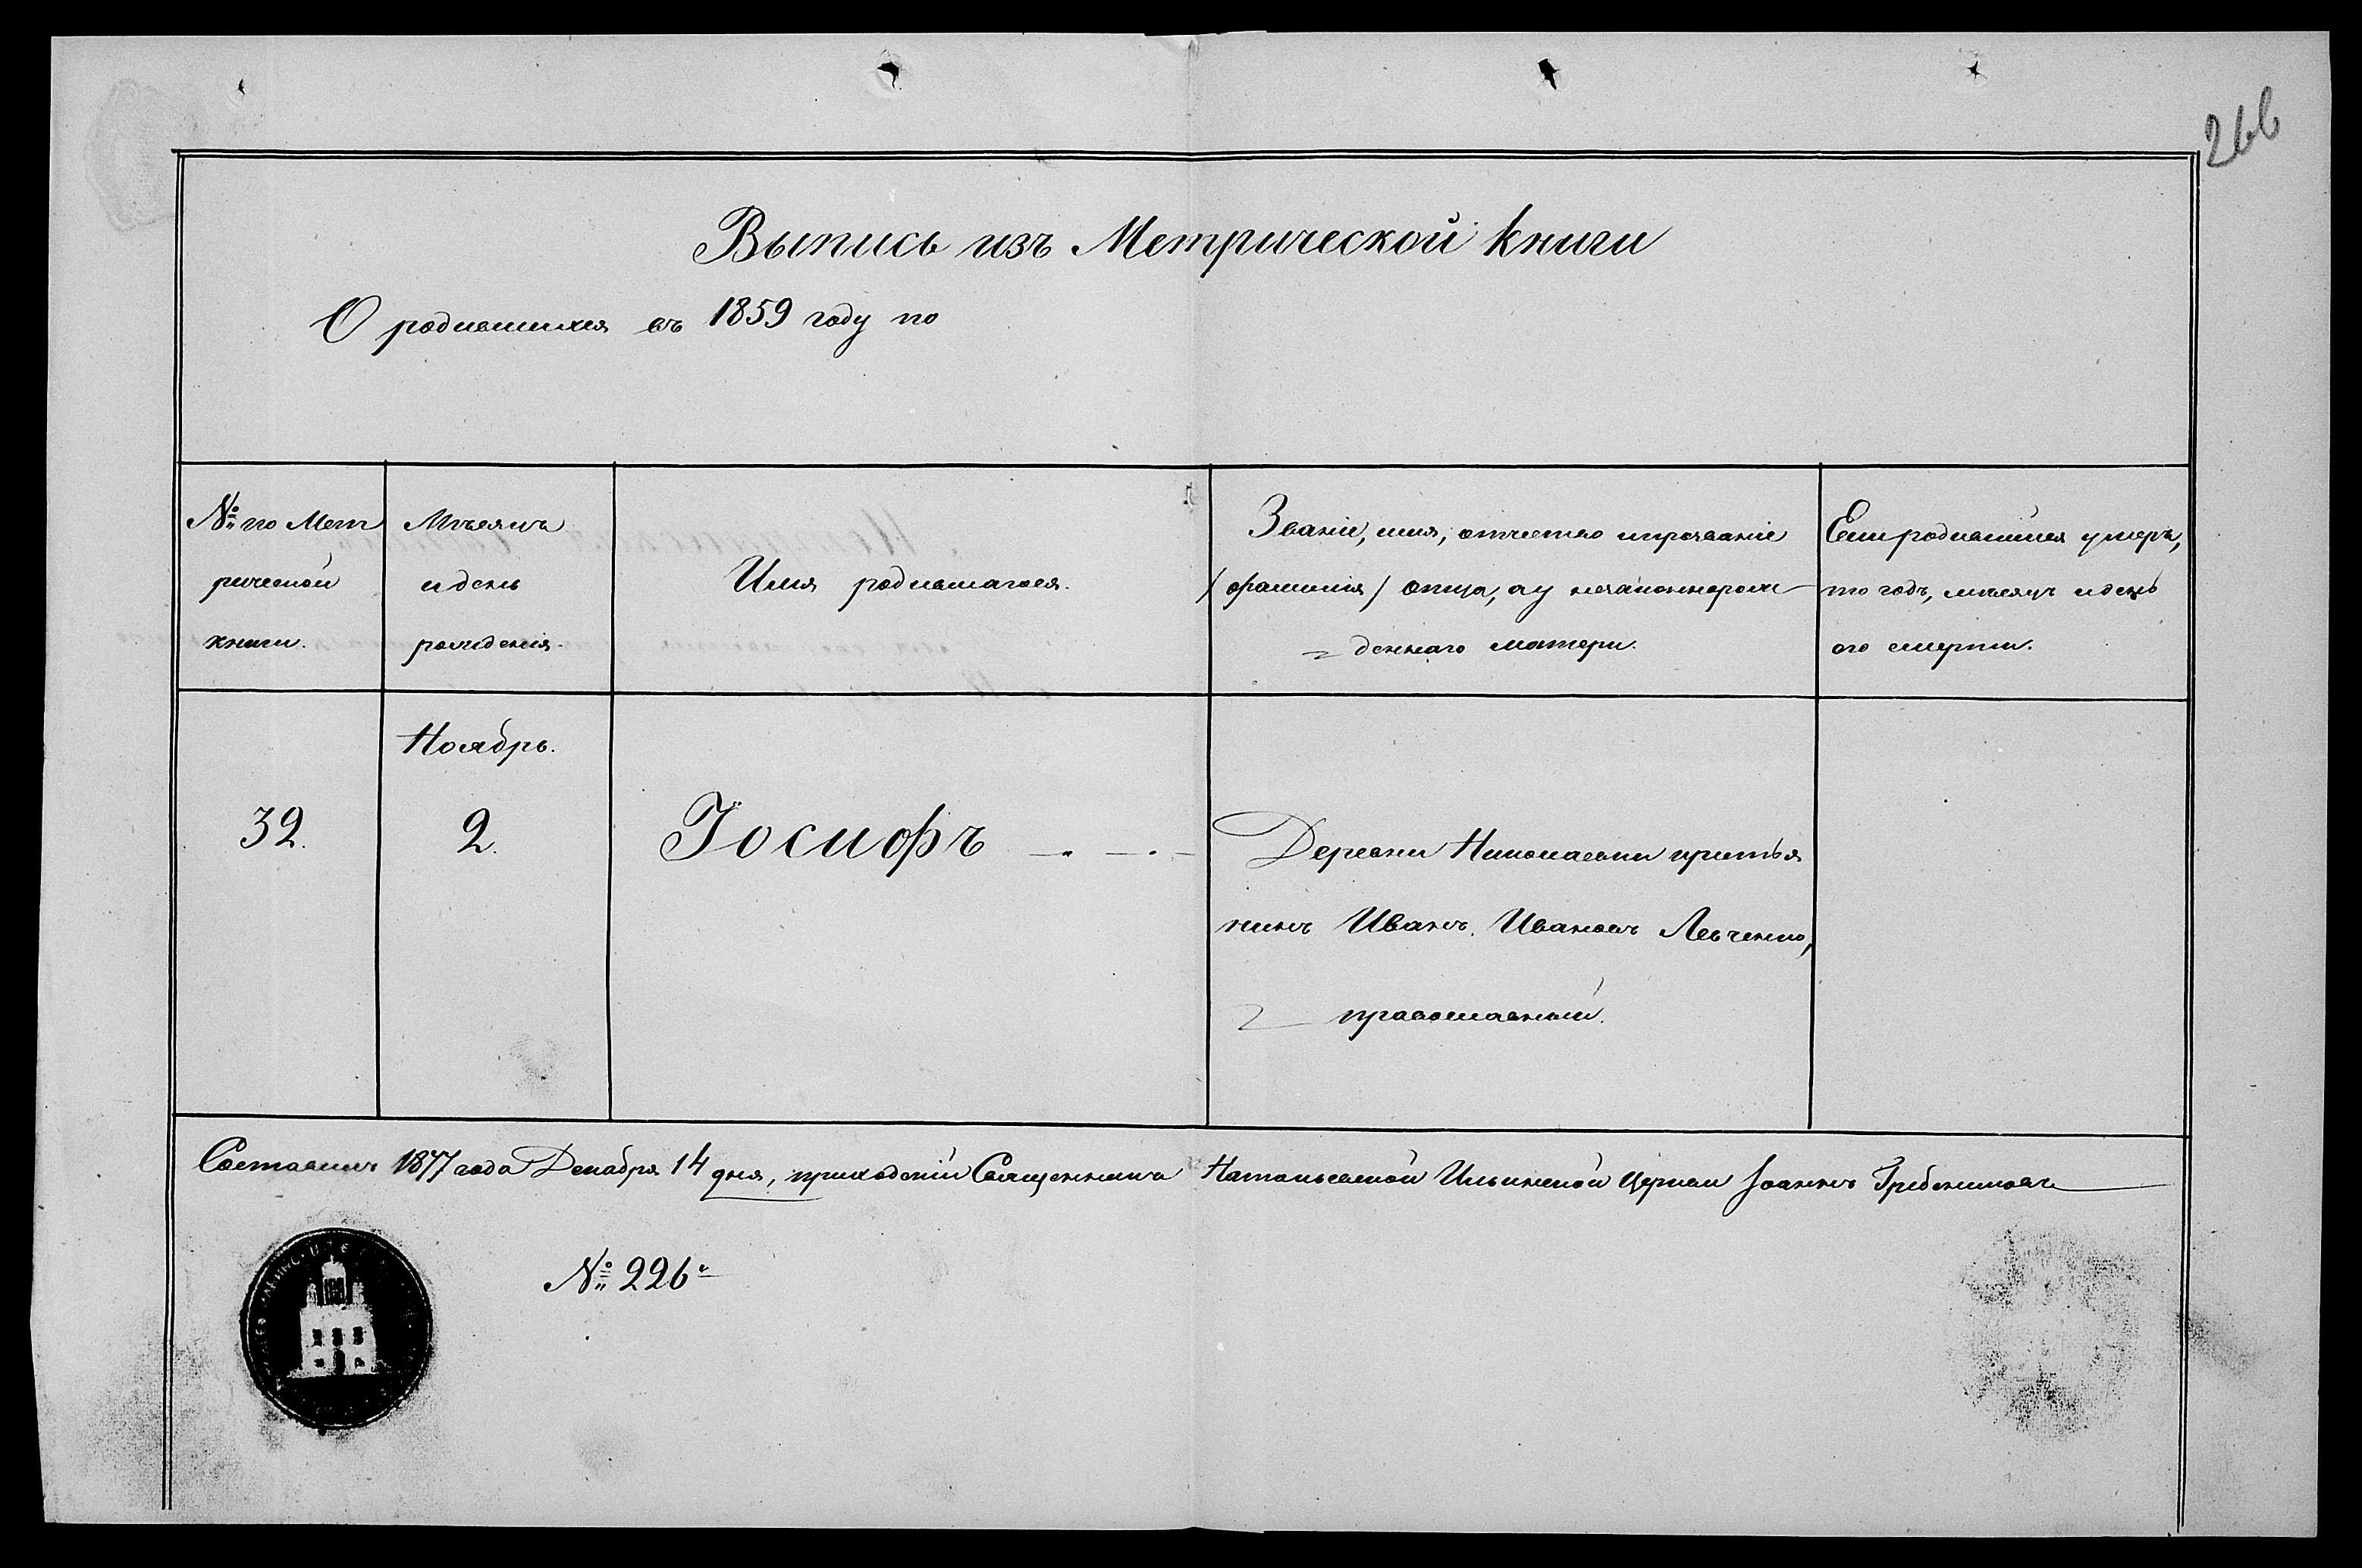 266
Выпись изъ Метрической книги
О родившихся въ 1859 году по
№ по Мет
рической
книги.
Мѣсяцъ
и день
рожденія.
Имя родившагося.
Званіе, имя, отчество и прозваніе
/фамилія/ отца, а у незаконнорож-
деннаго матери.
Если родившійся умеръ,
то годъ, мѣсяцъ и день
его смерти.
32.
Ноябрь.
2.
Іосифъ
Деревни Николаевки кртья
нинъ Иванъ Ивановъ Левченко,
православный.
Составилъ 1877 года Декабря 14 дня, приходскій Священникъ Ильинской Церкви Іоаннъ
№ 226